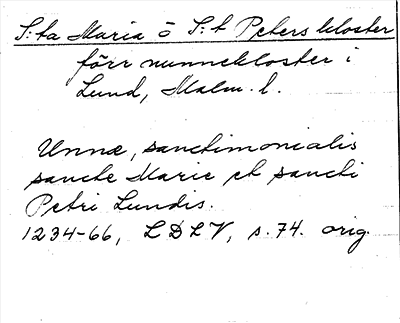 S:ta Maria o S:t Peters kloster
förr nunnekloster i
Lund, Malm. l.
Unnæ, sanctimonialis
sancte Marie et sancti
Petri Lundis.
1234-66, LDLV, s. 74. orig.